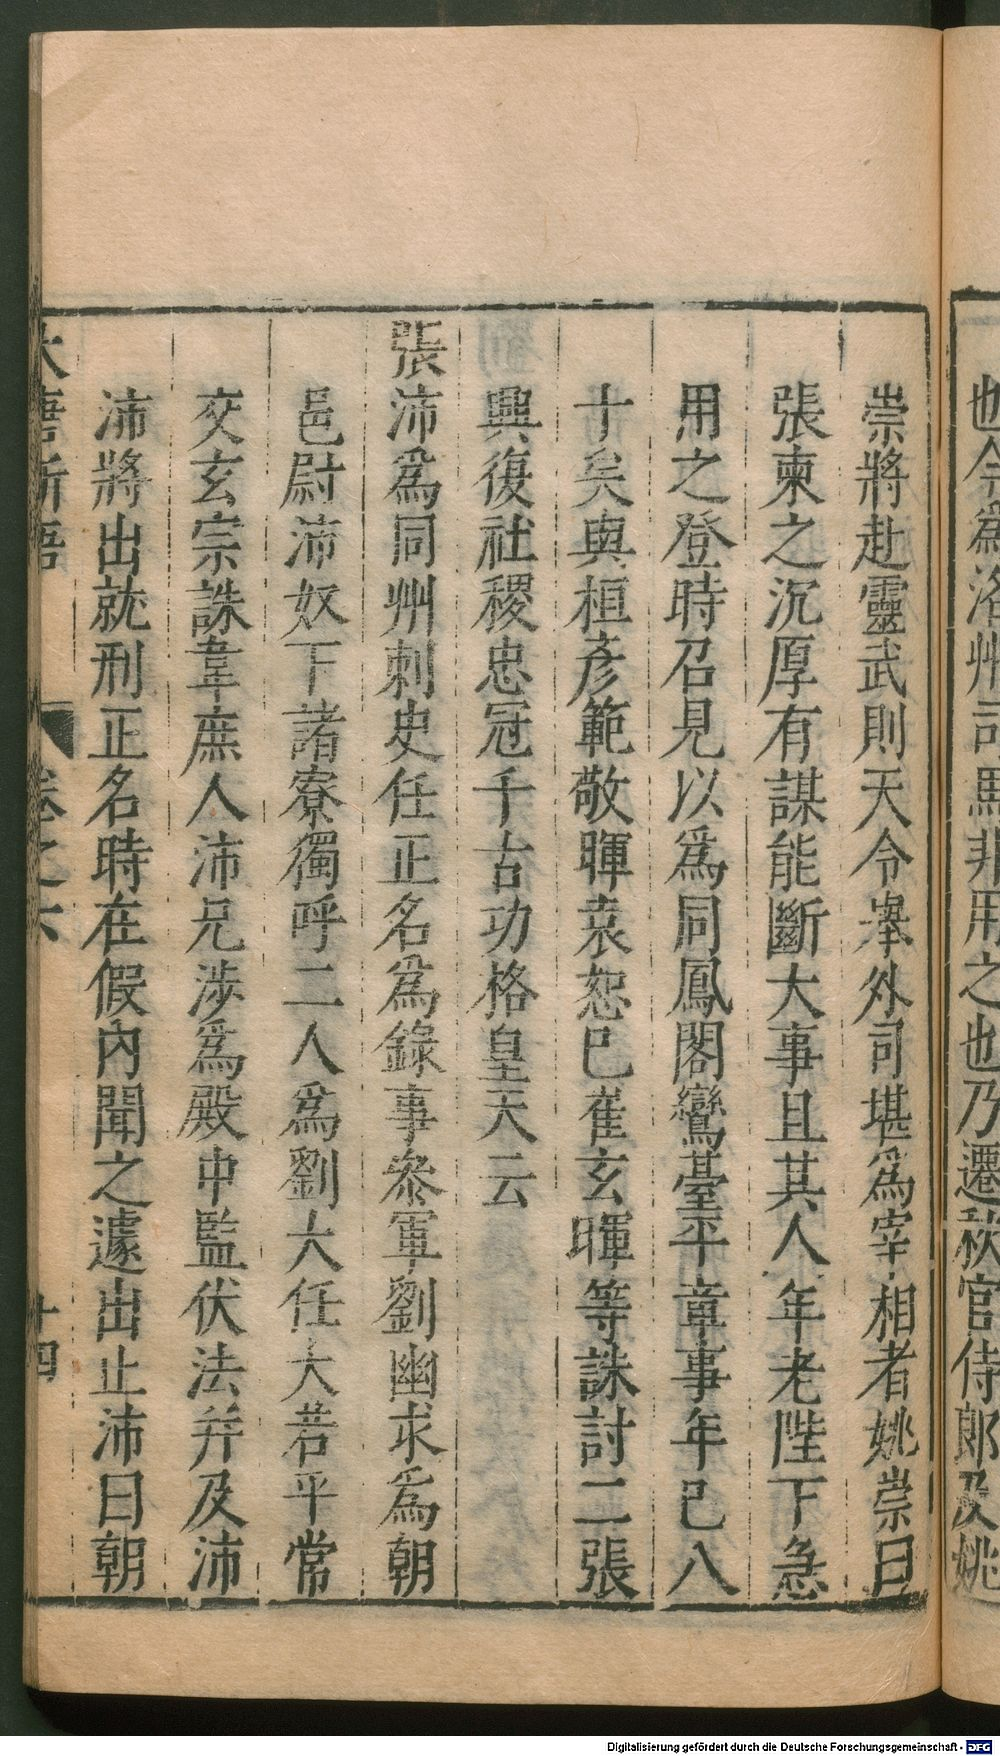 也今爲洛州司馬非用之也乃遷秋官侍郎及姚
崇將赴靈武則天令舉外司堪爲宰相者姚崇曰
張柬之沉厚有謀能斷大事且其人年老陛下急
用之登時召見以爲同鳳閣鸞臺平章事年已八
十矣與桓彥範敬暉袁恕巳崔玄暉等誅討二張
興復社稷忠冠千古功格皇天云
張沛爲同州刺史任正名爲錄事參軍劉幽求爲朝
邑尉沛奴下諸寮獨呼二人爲劉大任大若平常
交玄宗誅韋庶人沛兄涉爲殿中監伏法并及沛
沛將出就刑正名時在假內聞之遽出止沛曰朝
大唐新語 卷之六 十四
Digitalisierung gefördert durch die Deutsche Forschungsgemeinschaft - DFG